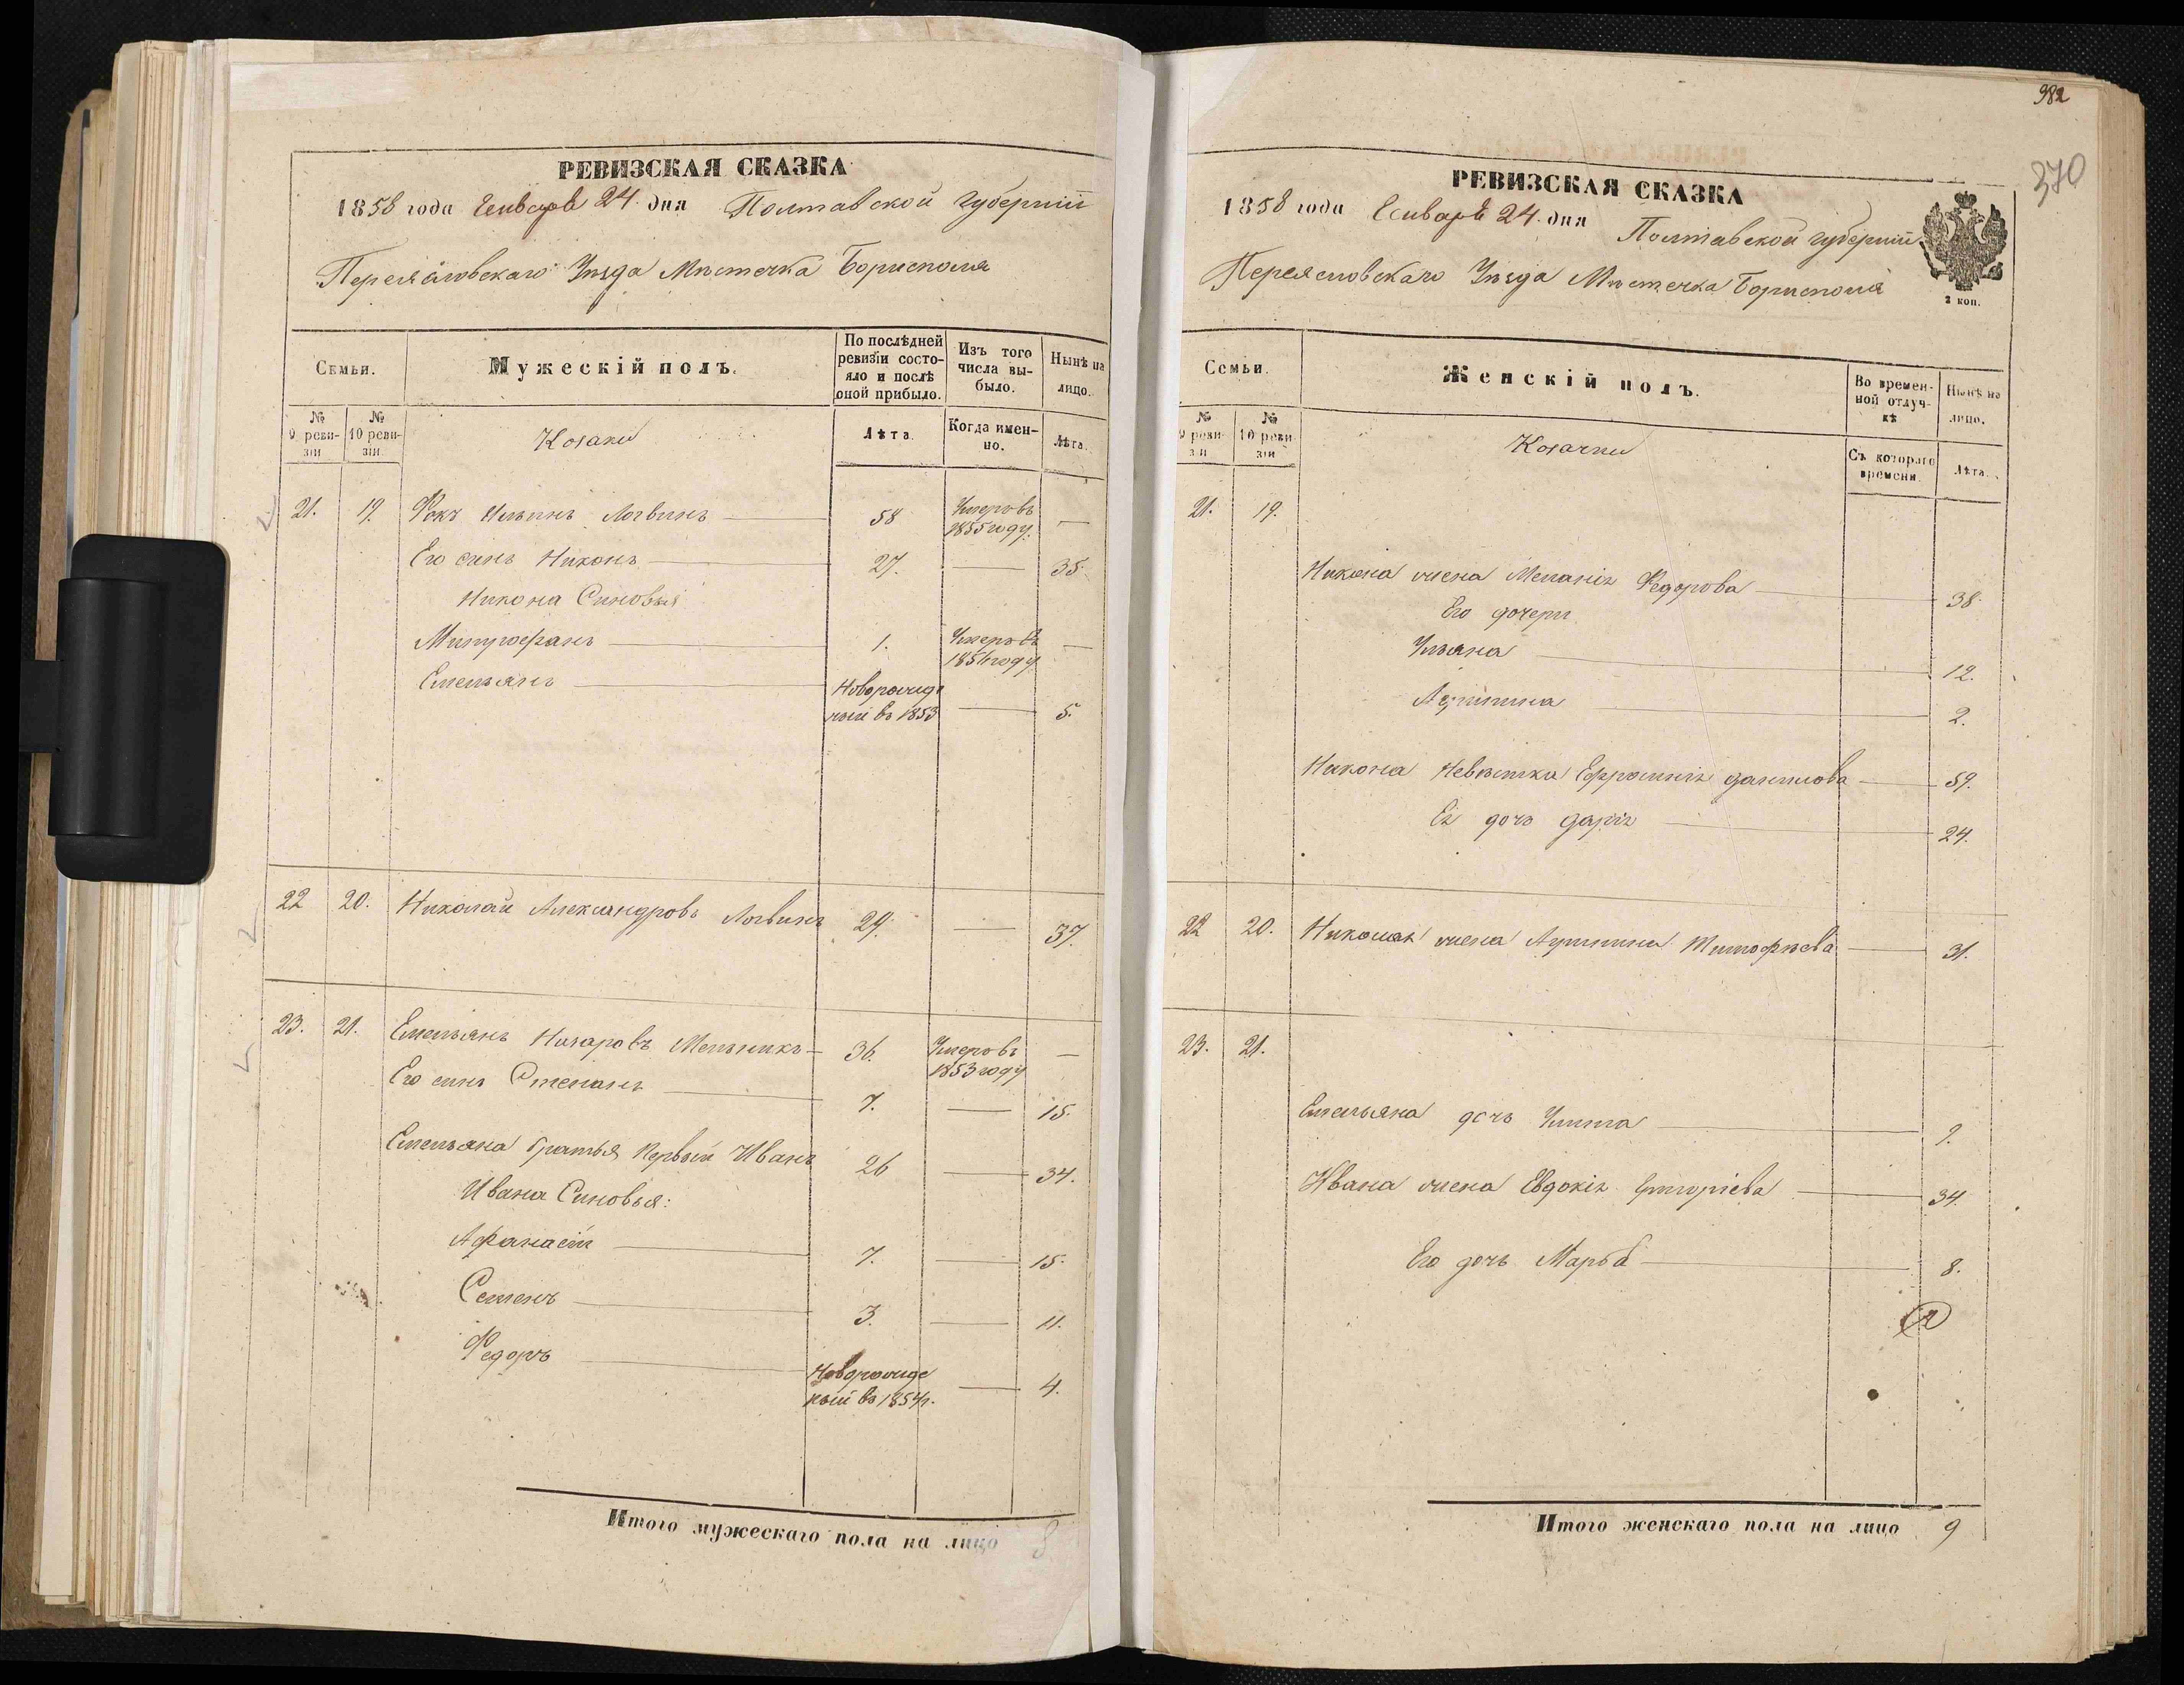 РЕВИЗСКАЯ СКАЗКА
1858 года Генваря 24 дня Полтавской Губернии
Переясловскаго Уезда Местечка Борисполя
Семьи.
Мужескій полъ.
По послѣдней ревизіи состояло и послѣ оной прибыло.
Изъ того числа выбыло.
Нынѣ на лицо.
№ 9 ревизіи
№ 10 ревизіи
Козаки
Лѣта.
Когда именно.
Лѣта.
21. 19. Фокъ Ильинъ Логвинъ 58 Умеръ въ 1855 году. —
Его синъ Никонъ 27. — 35.
Никона Синовья
Митрофанъ 1. Умеръ въ 1851 году —
Емельянъ Новорожденый въ 1853 — 5.
22 20. Николай Александровъ Логвинъ 29. — 37.
23. 21. Емельянъ Назаровъ Мельникъ 36. Умеръ въ 1853 году —
Его синъ Степанъ 7. — 15.
Емельяна братья Первый Иванъ 26 — 34.
Ивана Синовья:
Афанасій 7. — 15.
Семенъ 3. — 11.
Федоръ Новорожденый въ 1854 г. — 4.
Итого мужескаго пола на лицо 8
982
370
РЕВИЗСКАЯ СКАЗКА
1858 года Генваря 24 дня Полтавской Губернии
Переясловскаго Уезда Местечка Борисполя
2 коп.
Семьи.
Женскій полъ.
Во временной отлучкѣ
Нынѣ на лицо.
№ 9 ревизіи
№ 10 ревизіи
Козачки
Съ котораго времени.
Лѣта.
21. 19.
Никона жена Меланія Федорова 38.
Его дочери
Ульяна 12.
Агрипина 2.
Никона Невѣстка Ефросинія Данилова 59.
Ея дочь Дарія 24.
22 20. Николая жена Агрипина Тимофѣева — 31.
23. 21.
Емельяна дочь Улита 9.
Ивана жена Евдокія Григоріева — 34.
Его дочь Марѳа 8.
Итого женскаго пола на лицо 9